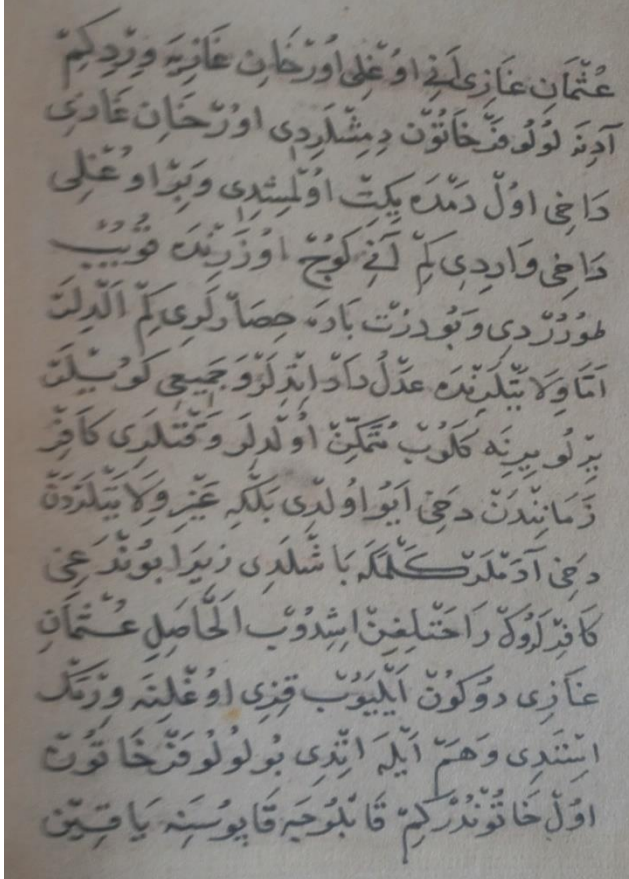 عُثْمَانِ غَازِى اَنِى اوُغْلِى اوُرْخَانِ غَازِيَه وِرْدِكِمْ
آدِنَه لُولُوفَرْ خَاتُونْ دِمِشْلَرِدِى اوُرْخَانِ غَازِى
دَاخِى اوُلْ دَمْدَه يِكِتْ اوُلْمِشِدِى وَبِرْ اوُغْلِى
دَاخِى وَارِدِى كِمْ آنِى كَوُجْ اوُزَرِنْدَه قُويُبْ
طوُرُرْدِى وَبُو دِرْتْ بَارَه حِصَارْلَرِى كِمْ اَلْدِلَرْ
اَمَّا وِلَايَتْلَرِنْدَه عَدْلُ دَادْ اِتْدِلَرْ وَجَمِيعِى كَوُيْلَرْ
يِرْلُو يِرِنَه كَلُوبْ مُتَمَكِّنْ اوُلْدِلَرْ وَقْتْلَرِى كَافِرْ
زَمَانِنْدَنْ دَخِى اَيُو اوُلْدِى بَلْكِه غَيْرِ وِلَايَتْلَرْدَنْ
دَخِى آدَمْلَرْ كَلْمَكَه بَاشْلَدِى زِيرَا بوُنْدَغِى
كَافِرْلَرُوكْ رَاحَتْلِغِنْ اِشِدُوبْ اَلْحَاصِلِ عُثْمَانِ
غَازِى دوُكوُنْ اَيْلَيُوبْ قِزِى اوُغْلِنَه وِرْمَكْ
اِسْتَدِى وَهَمْ اَيْلَه اِتْدِى بُو لُولُوفَرْ خَاتُونْ
اوُلْ خَاتُونْدُرْكِمْ قَابْلُوجَه قَاپُوسِنَه يَاقِينْ